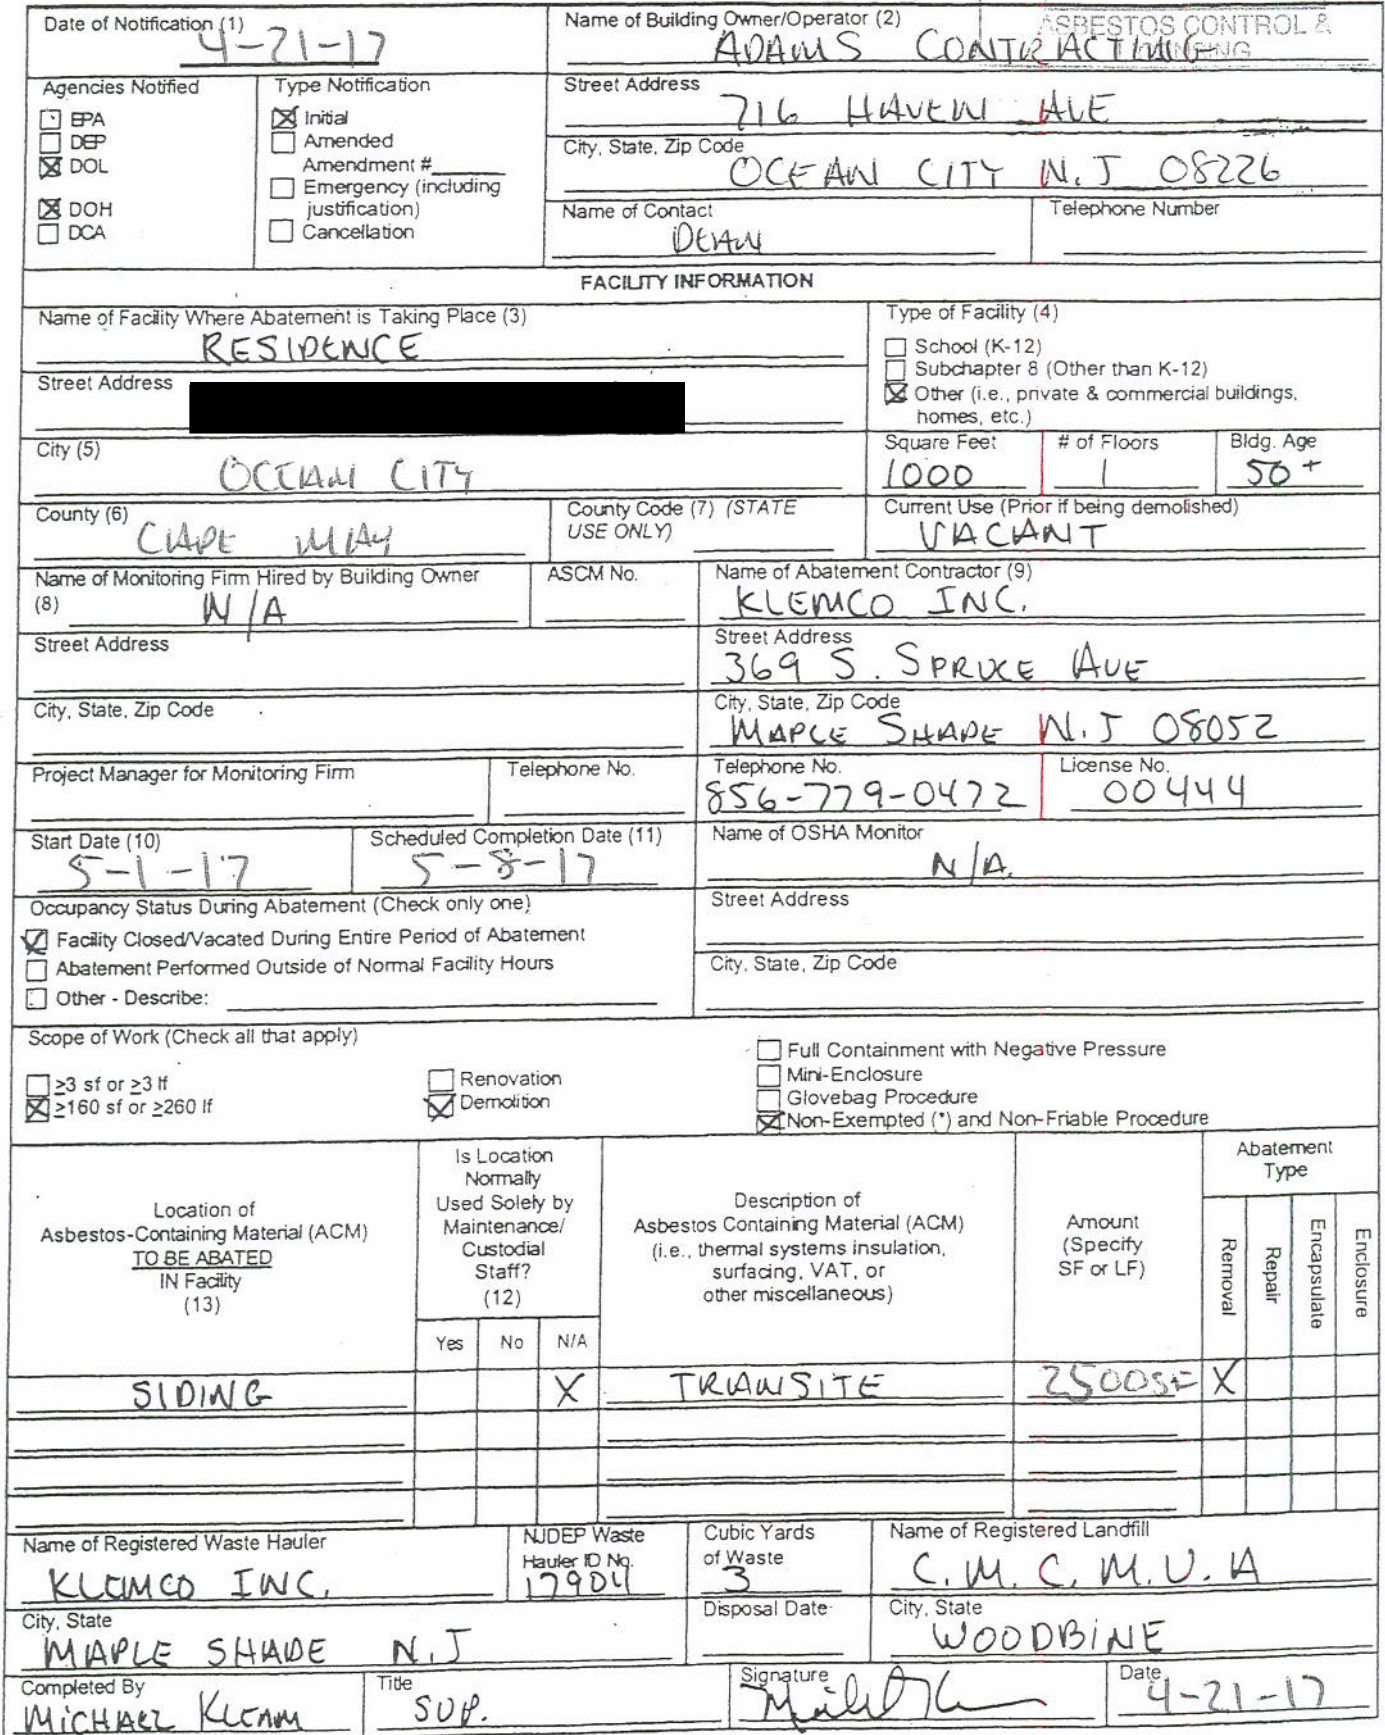 Date of Notification (1)
4-21-17
Name of Building Owner/Operator (2)
ASBESTOS CONTROL &
ADAMS CONTRACTING
Agencies Notified
EPA
DEP
DOL
DOH
DCA
Type Notification
Initial
Amended
Amendment #
Emergency (including
justification)
Cancellation
Street Address
716 HAVEN AVE
City, State, Zip Code
OCEAN CITY N.J 08226
Name of Contact
DEAN
Telephone Number
FACILITY INFORMATION
Name of Facility Where Abatement is Taking Place (3)
RESIDENCE
Street Address
Type of Facility (4)
School (K-12)
Subchapter 8 (Other than K-12)
Other (i.e., private & commercial buildings,
homes, etc.)
City (5)
OCEAN CITY
Square Feet
1000
# of Floors
1
Bldg. Age
50+
County (6)
CAPE MAY
County Code (7) (STATE
USE ONLY)
Current Use (Prior if being demolished)
VACANT
Name of Monitoring Firm Hired by Building Owner
(8)
N/A
ASCM No.
Name of Abatement Contractor (9)
KLEMCO INC.
Street Address
Street Address
369 S. SPRUCE AVE
City, State, Zip Code
City, State, Zip Code
MAPLE SHADE N.J 08052
Project Manager for Monitoring Firm
Telephone No.
Telephone No.
856-779-0472
License No.
00444
Start Date (10)
5-1-17
Scheduled Completion Date (11)
5-8-17
Name of OSHA Monitor
N/A.
Occupancy Status During Abatement (Check only one)
Facility Closed/Vacated During Entire Period of Abatement
Abatement Performed Outside of Normal Facility Hours
Other - Describe:
Street Address
City, State, Zip Code
Scope of Work (Check all that apply)
≥3 sf or ≥3 lf
≥160 sf or ≥260 lf
Renovation
Demolition
Full Containment with Negative Pressure
Mini-Enclosure
Glovebag Procedure
Non-Exempted (*) and Non-Friable Procedure
Location of
Asbestos-Containing Material (ACM)
TO BE ABATED
IN Facility
(13)
Is Location
Normally
Used Solely by
Maintenance/
Custodial
Staff?
(12)
Yes No N/A
Description of
Asbestos Containing Material (ACM)
(i.e., thermal systems insulation,
surfacing, VAT, or
other miscellaneous)
Amount
(Specify
SF or LF)
Abatement
Type
Removal
Repair
Encapsulate
Enclosure
SIDING X TRANSITE 2500SF X
Name of Registered Waste Hauler
KLEMCO INC.
NJDEP Waste
Hauler ID No.
17904
Cubic Yards
of Waste
3
Name of Registered Landfill
C.M.C.M.U.A
City, State
MAPLE SHADE N.J
Disposal Date
City, State
WOODBINE
Completed By
MICHAEL KLEMM
Title
SUP.
Signature
Date
4-21-17